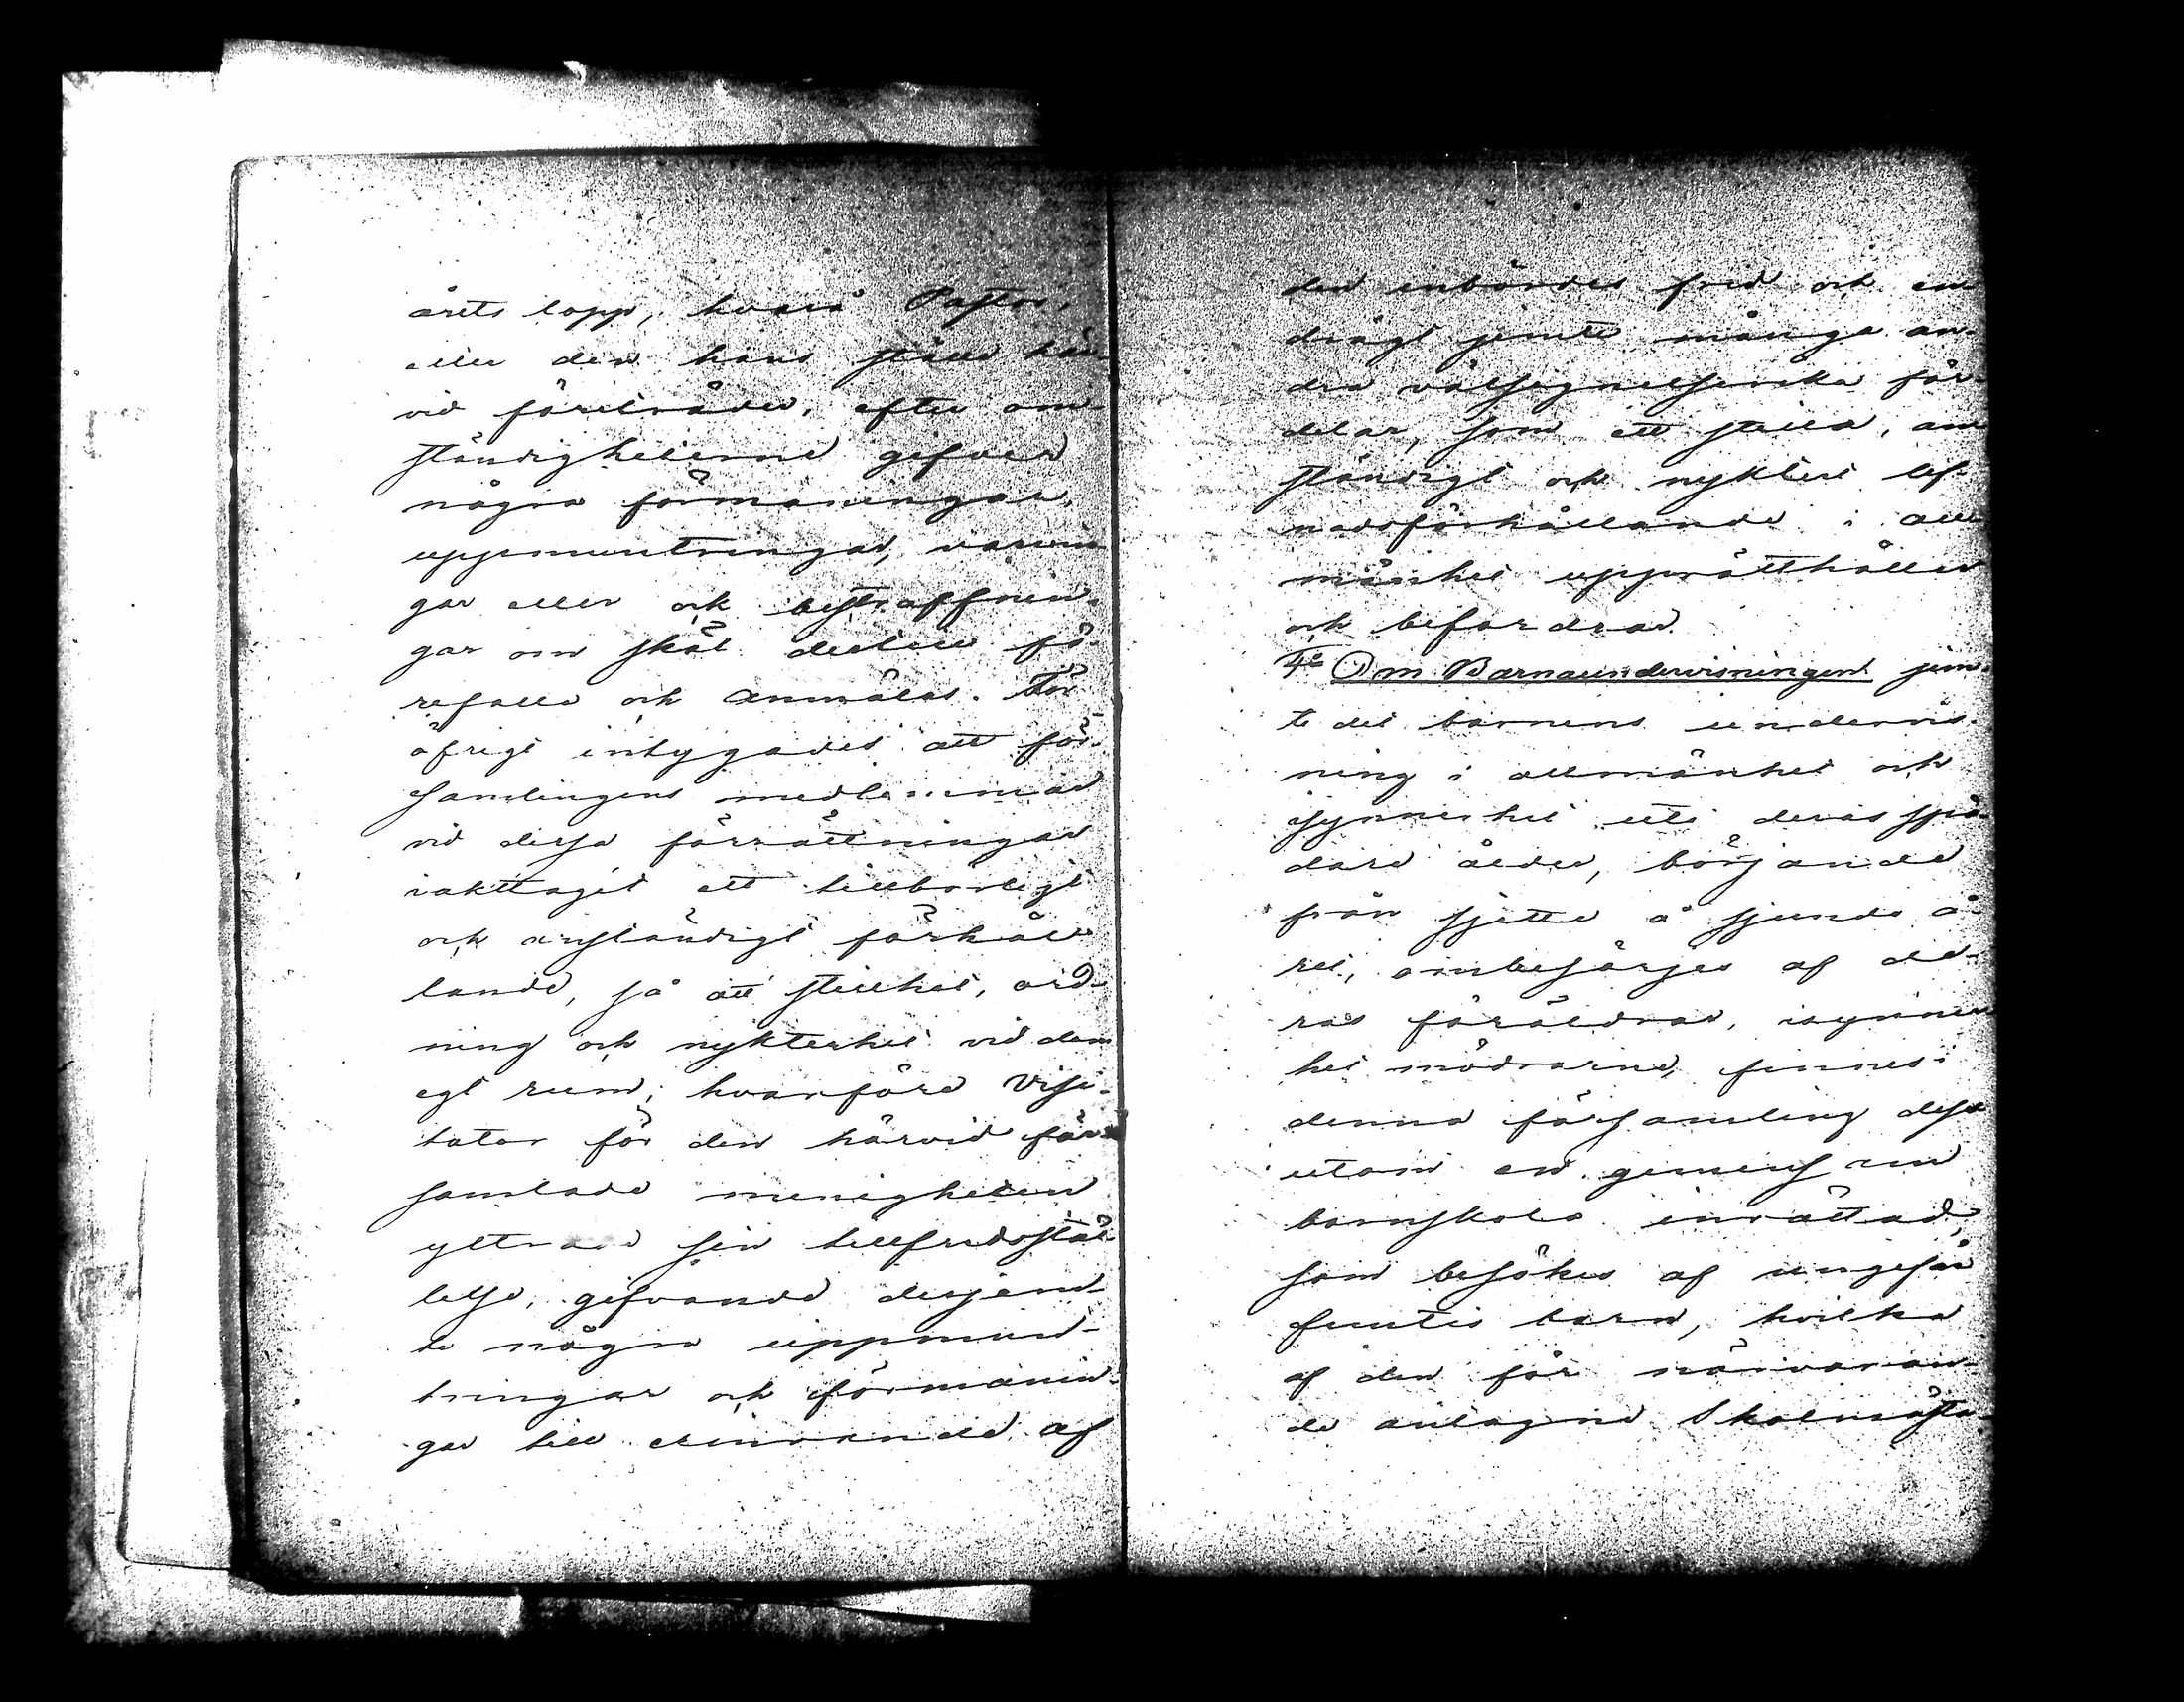 årets lopp, hvarå Pastor,
eller den hans ställe här-
vid företräder, efter om-
ständigheterne gifver
några förmaningar,
uppmuntringar, varnin
gar eller ock bestraffnin-
gar om skäl dertill fö-
refalla och anmälas. För
öfrigt intygades att för-
samlingens medlemmar
vid dessa förrättningar
iakttagit ett tillbörligt
och anständigt förhål-
lande, så att stillhet, ord-
ning och nykterhet vid dem
egt rum; hvarföre Visi-
tator för den härvid för-
samlade menigheten
yttrade sin tillfredsstäl-
lelse, gifvande desjem-
te några uppmun-
tringar och förmanin-
gar till erinrande af
den inbördes frid och en
drägt jemte många an-
dra välsignelserika för-
delar, som ett stilla, an
ständigt och nyktert lef-
nadsförhållande i all
mänhet upprätthåller
och befordrar.
4o Om Barnaundervisningen jem-
te det barnens undervis-
ning i allmänhet och
synnerhet uti deras spä-
dare ålder, börjande
från sjette å sjunde å-
ret, ombesörjes af de-
ras föräldrar, isynner
het mödrarne, finnes i
denna församling dess
utom en gemensam
barnskola inrättad,
som besökes af ungefär
femtio barn, hvilka
af den för närvaran-
de antagne Skolmästa-